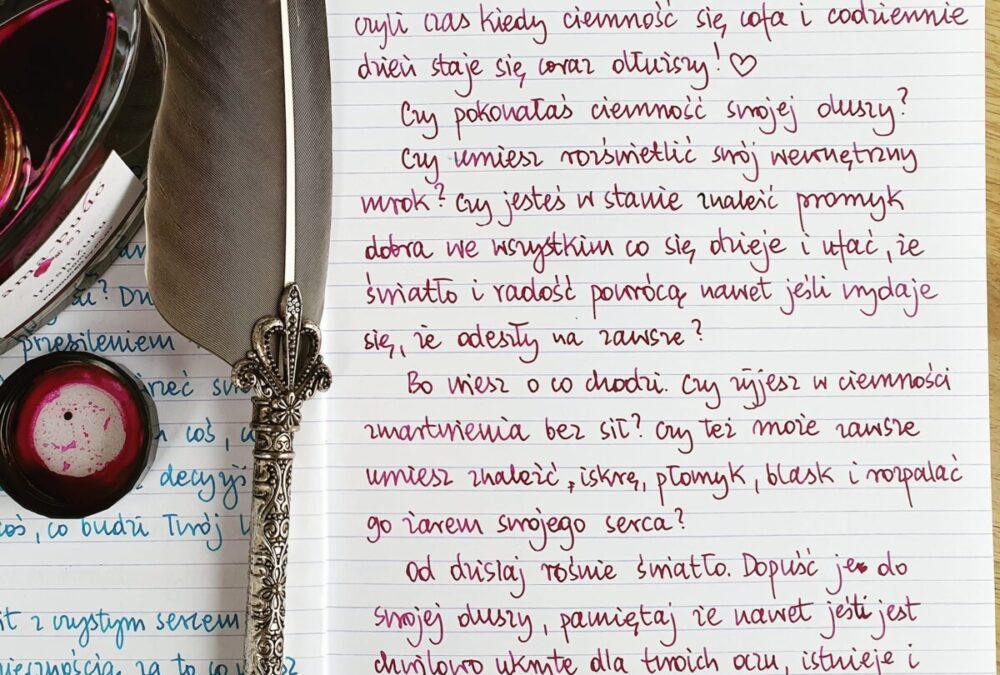 czyli czas kiedy ciemność się cofa i codziennie
dzień staje się coraz dłuższy! ♡
Czy pokonałaś ciemność swojej duszy?
Czy umiesz rozświetlić swój wewnętrzny
mrok? Czy jesteś w stanie znaleźć promyk
dobra we wszystkim co się dzieje i ufać, że
światło i radość powrócą nawet jeśli wydaje
się, że odeszły na zawsze?
Bo wiesz o co chodzi. Czy żyjesz w ciemności
zmartwienia bez sił? Czy też może zawsze
umiesz znaleźć, iskrę, płomyk, blask i rozpalać
go żarem swojego serca?
Od dzisiaj rośnie światło. Dopuść je do
swojej duszy, pamiętaj że nawet jeśli jest
chwilowo ukryte dla twoich oczu, istnieje i
przesileniem
coś,
decyzji
coś, co budzi Twój
z czystym sercem
za to co